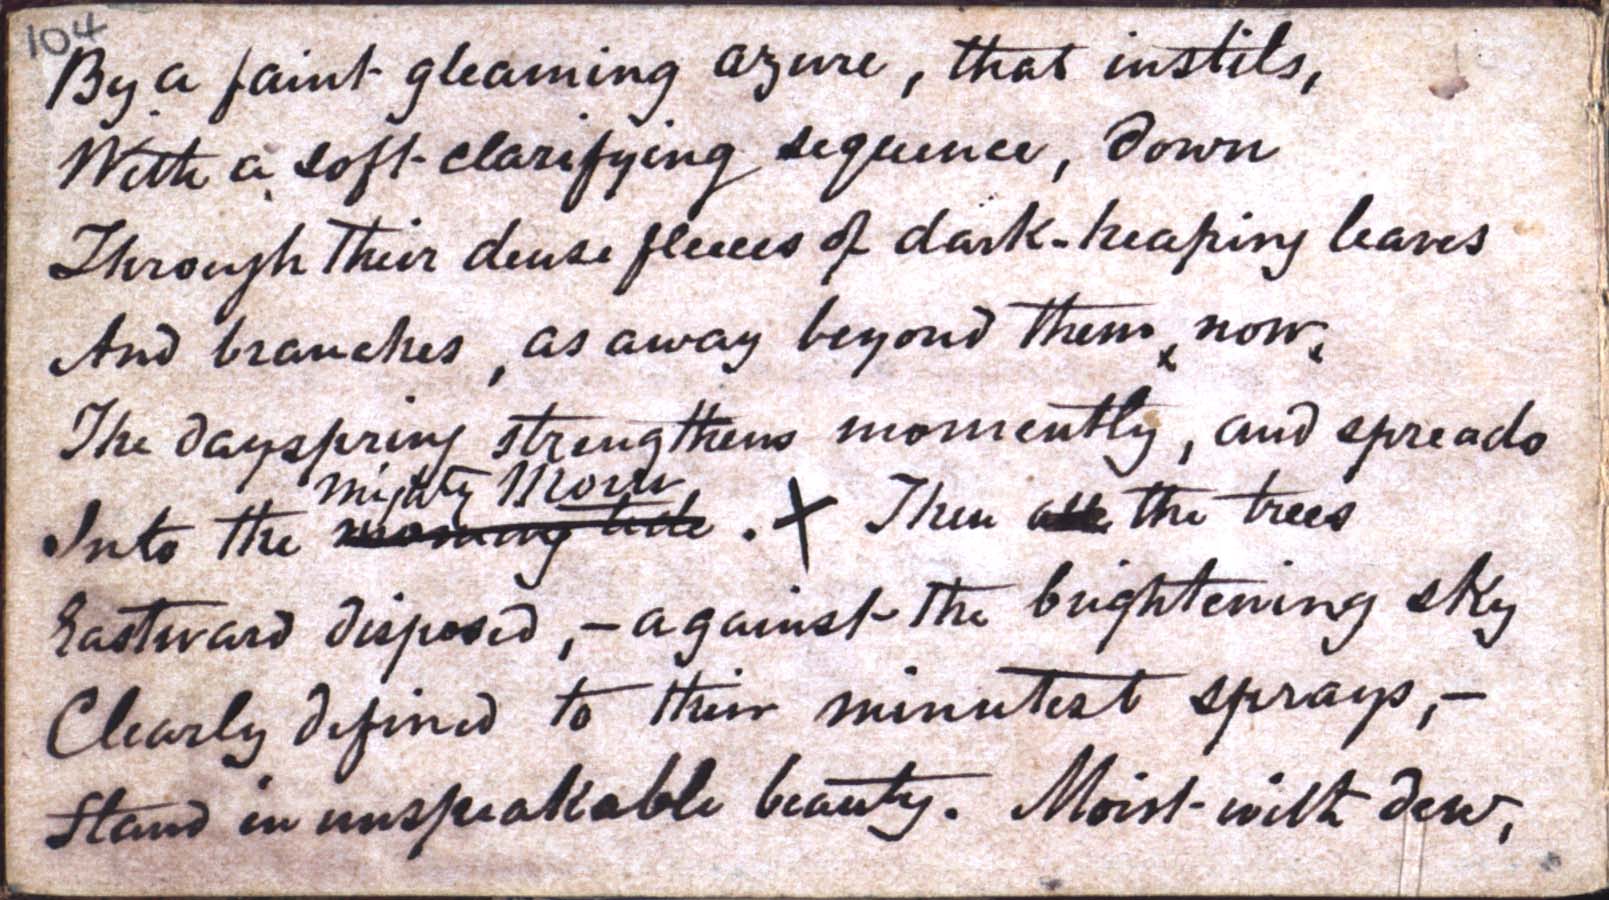 104
By a faint gleaming azure, that instils,
With a soft clarifying sequence, down
Through their dense fleeces of dark-heaping leaves
And branches, as away beyond them, now,
The dayspring strengthens momently, and spreads
mighty Morn
Into the morning tide. X Then all the trees
Eastward disposed,—against the brightening sky
Clearly defined to their minutest sprays,—
Stand in unspeakable beauty. Moist with dew,